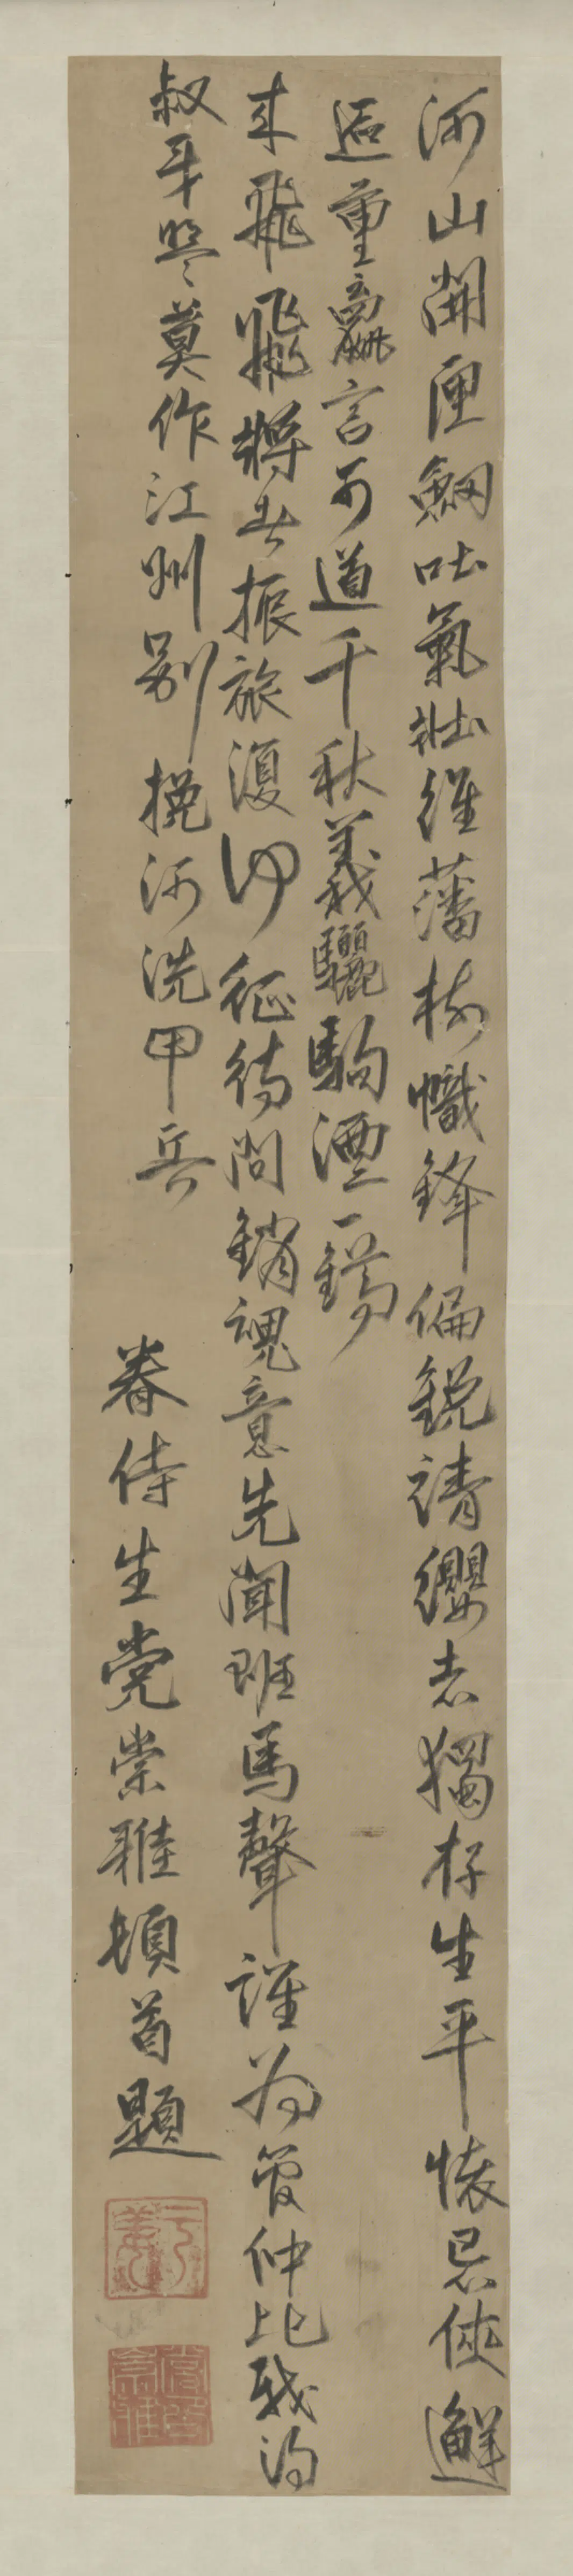 河山開匣劍吐氣壯維藩樹幟鋒偏銳請纓志獨存生平懷忌俠邂
逅重嬴言可道千秋義驪駒酒一罇
飛飛將振旅復征待問銷魂意先聞班馬聲誰為管仲比我得
叔牙盟莫作江州別挽河洗甲兵
眷侍生党崇雅頓首題